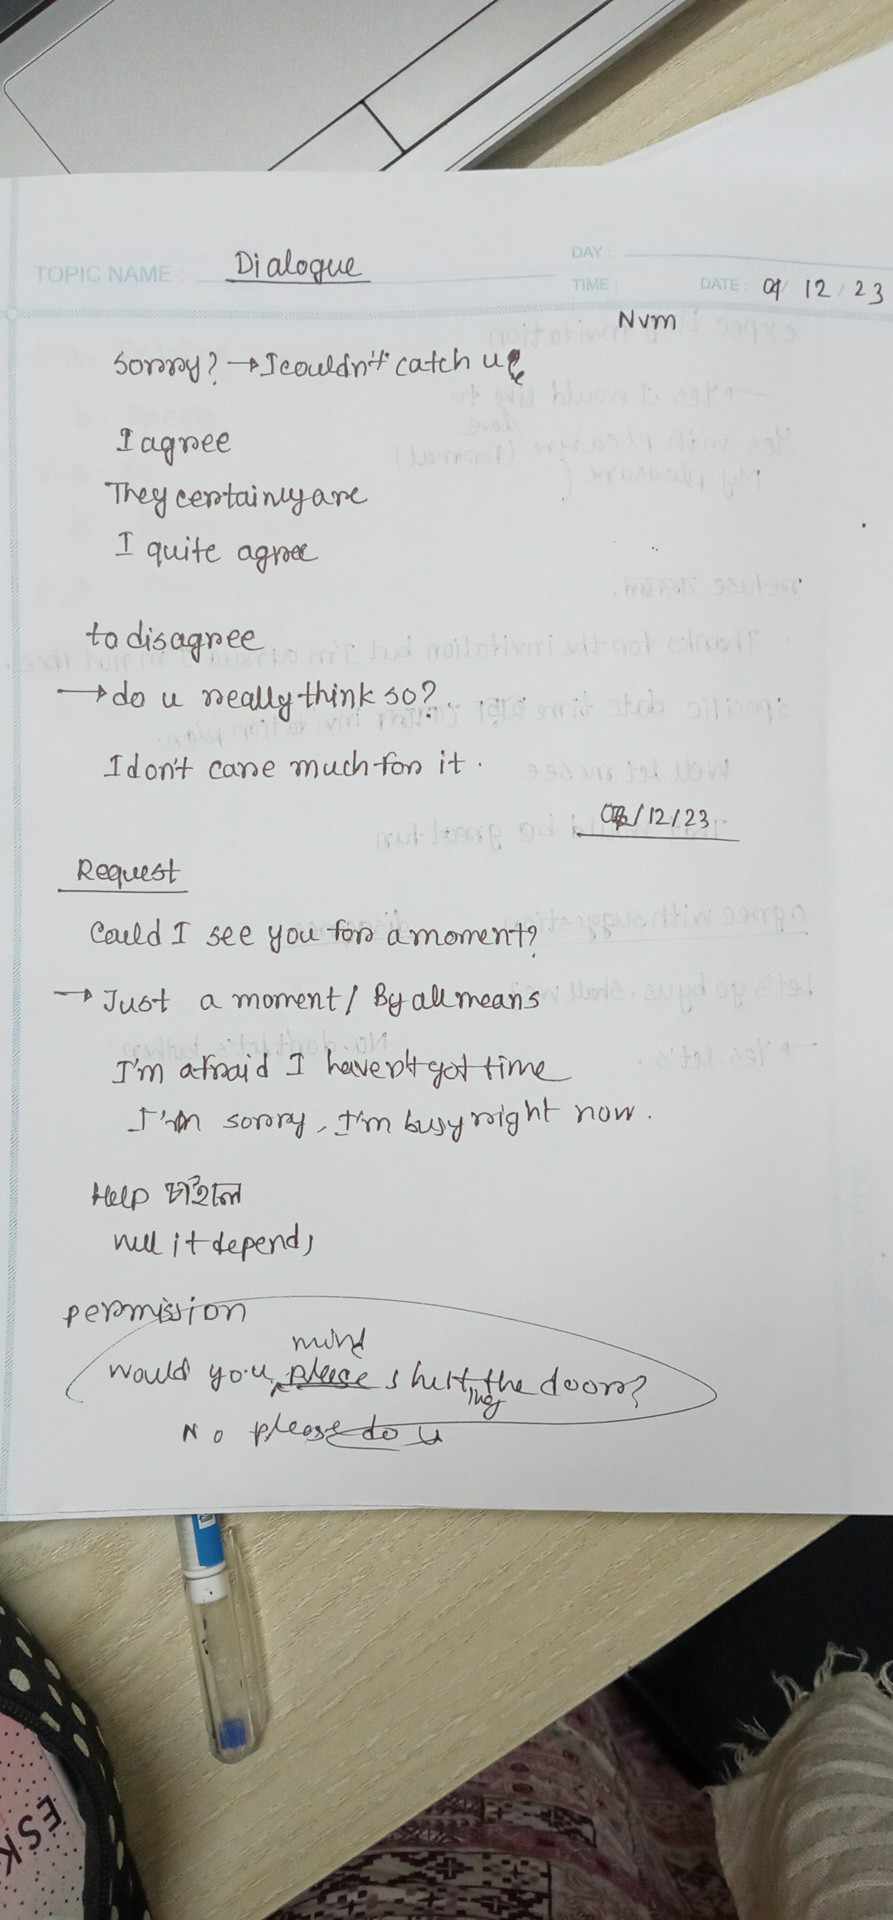 TOPIC NAME : Dialogue
DAY :
TIME :
DATE : 12/23
Nvm
Sorry? → I couldn't catch u
I agree
They certainly are
I quite agree
to disagree
→ do u really think so?
I don't care much for it.
/12/23
Request
Could I see you for a moment?
→ Just a moment / By all means
I'm afraid I haven't got time
I'm sorry, I'm busy right now.
Help চাইলে
well it depends
permission
mind
Would you please shutting the door?
No please do u
ESK